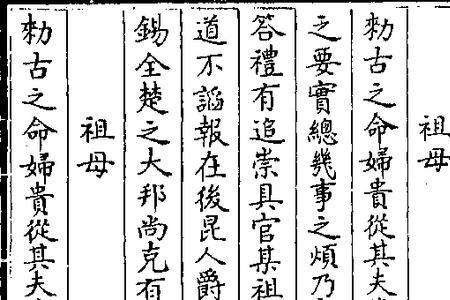 祖母
勑古之命婦貴從其夫
之要實總幾事之煩乃
答禮有追崇具官某祖
道不謟報在後昆人爵
錫全楚之大邦尚克有
祖母
勑古之命婦貴從其夫